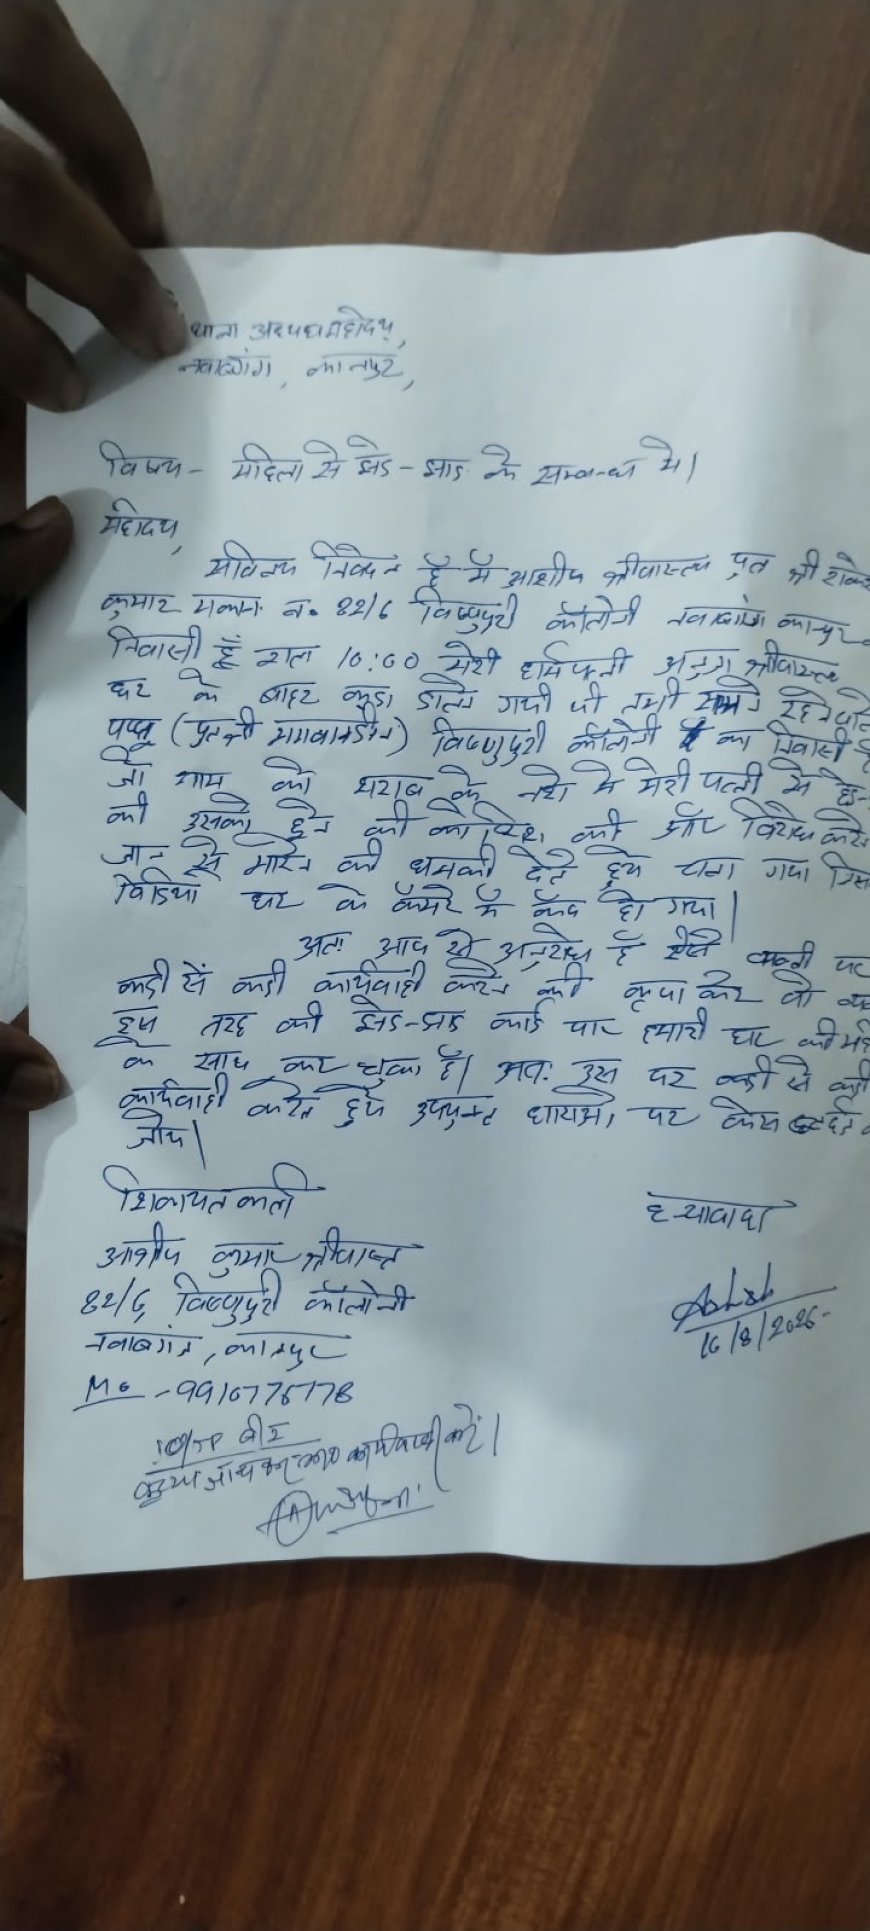 थाना अध्यक्ष महोदय,
नवाबगंज, कानपुर,
विषय - महिला से छेड-छाड के सम्बन्ध मे।
महोदय,
सविनय निवेदन है मैं आशीष श्रीवास्तव पुत्र श्री
कुमार मकान न. 82/6 विष्णुपुरी कॉलोनी नवाबगंज कानपुर
निवासी हूँ रात 10:00 मेरी धर्मपत्नी श्रीवास्तव
घर के बाहर कुडा डालने गयी थी तभी सामने रहने
पप्पू (पुत्र श्री भगवानदीन) विष्णुपुरी कॉलोनी का निवासी है
जो शाम को शराब के नशे मे मेरी पत्नी से
की उसको छुने की कोशिश की और विरोध करने
जान से मारने की धमकी देते हुये चला गया
विडियो घर के कैमरे मैं कैद हो गया।
अतः आप से अनुरोध है ऐसे व्यक्ती पर
कडी सें कडी कार्यवाही करने की कृपा करे वो
इस तरह की छेड-छाड कई बार हमारी घर की
के साथ कर चुका है। अतः उस पर कडी से कडी
कार्यवाही करते हुये उपयुक्त धाराओ पर केस दर्ज
जाये।
शिकायत कर्ता
धन्यवाद
आशीष कुमार श्रीवास्तव
82/6, विष्णुपुरी कॉलोनी
नवाबगंज, कानपुर
Ashish
16/8/2026
Mo - 9910776778
कृपया जाँच कर कार्यवाही करें।